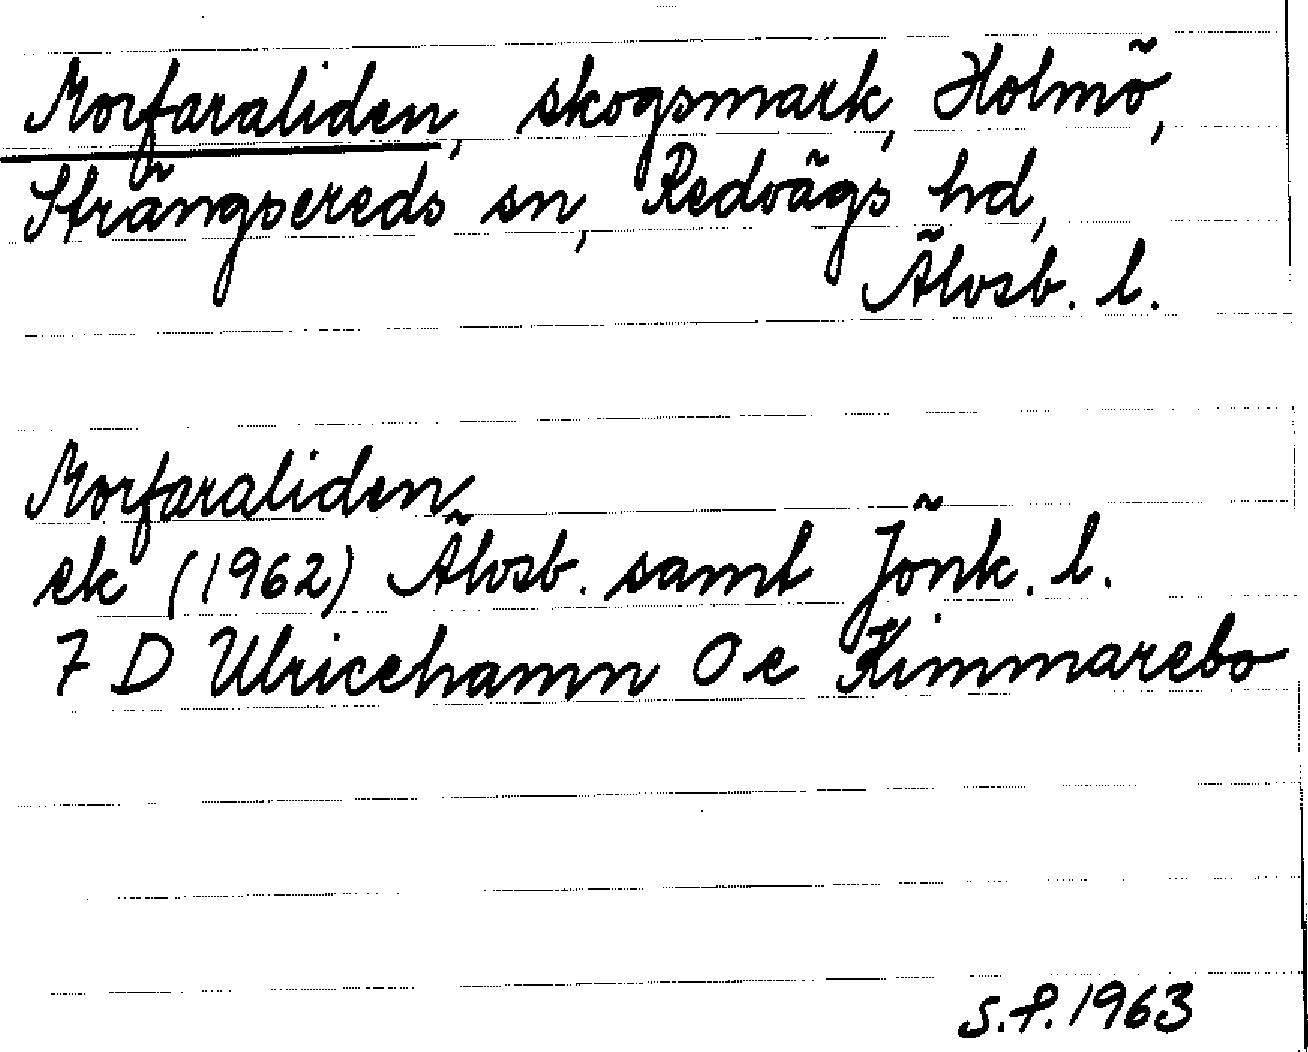 Morfaraliden, skogsmark, Holmö,
Strängsereds sn, Redvägs hd,
Älvsb. l.
Morfaraliden
ek (1962) Älvsb. samt Jönk. l.
7 D Ulricehamn 0 e Kimmarebo
S.P. 1963